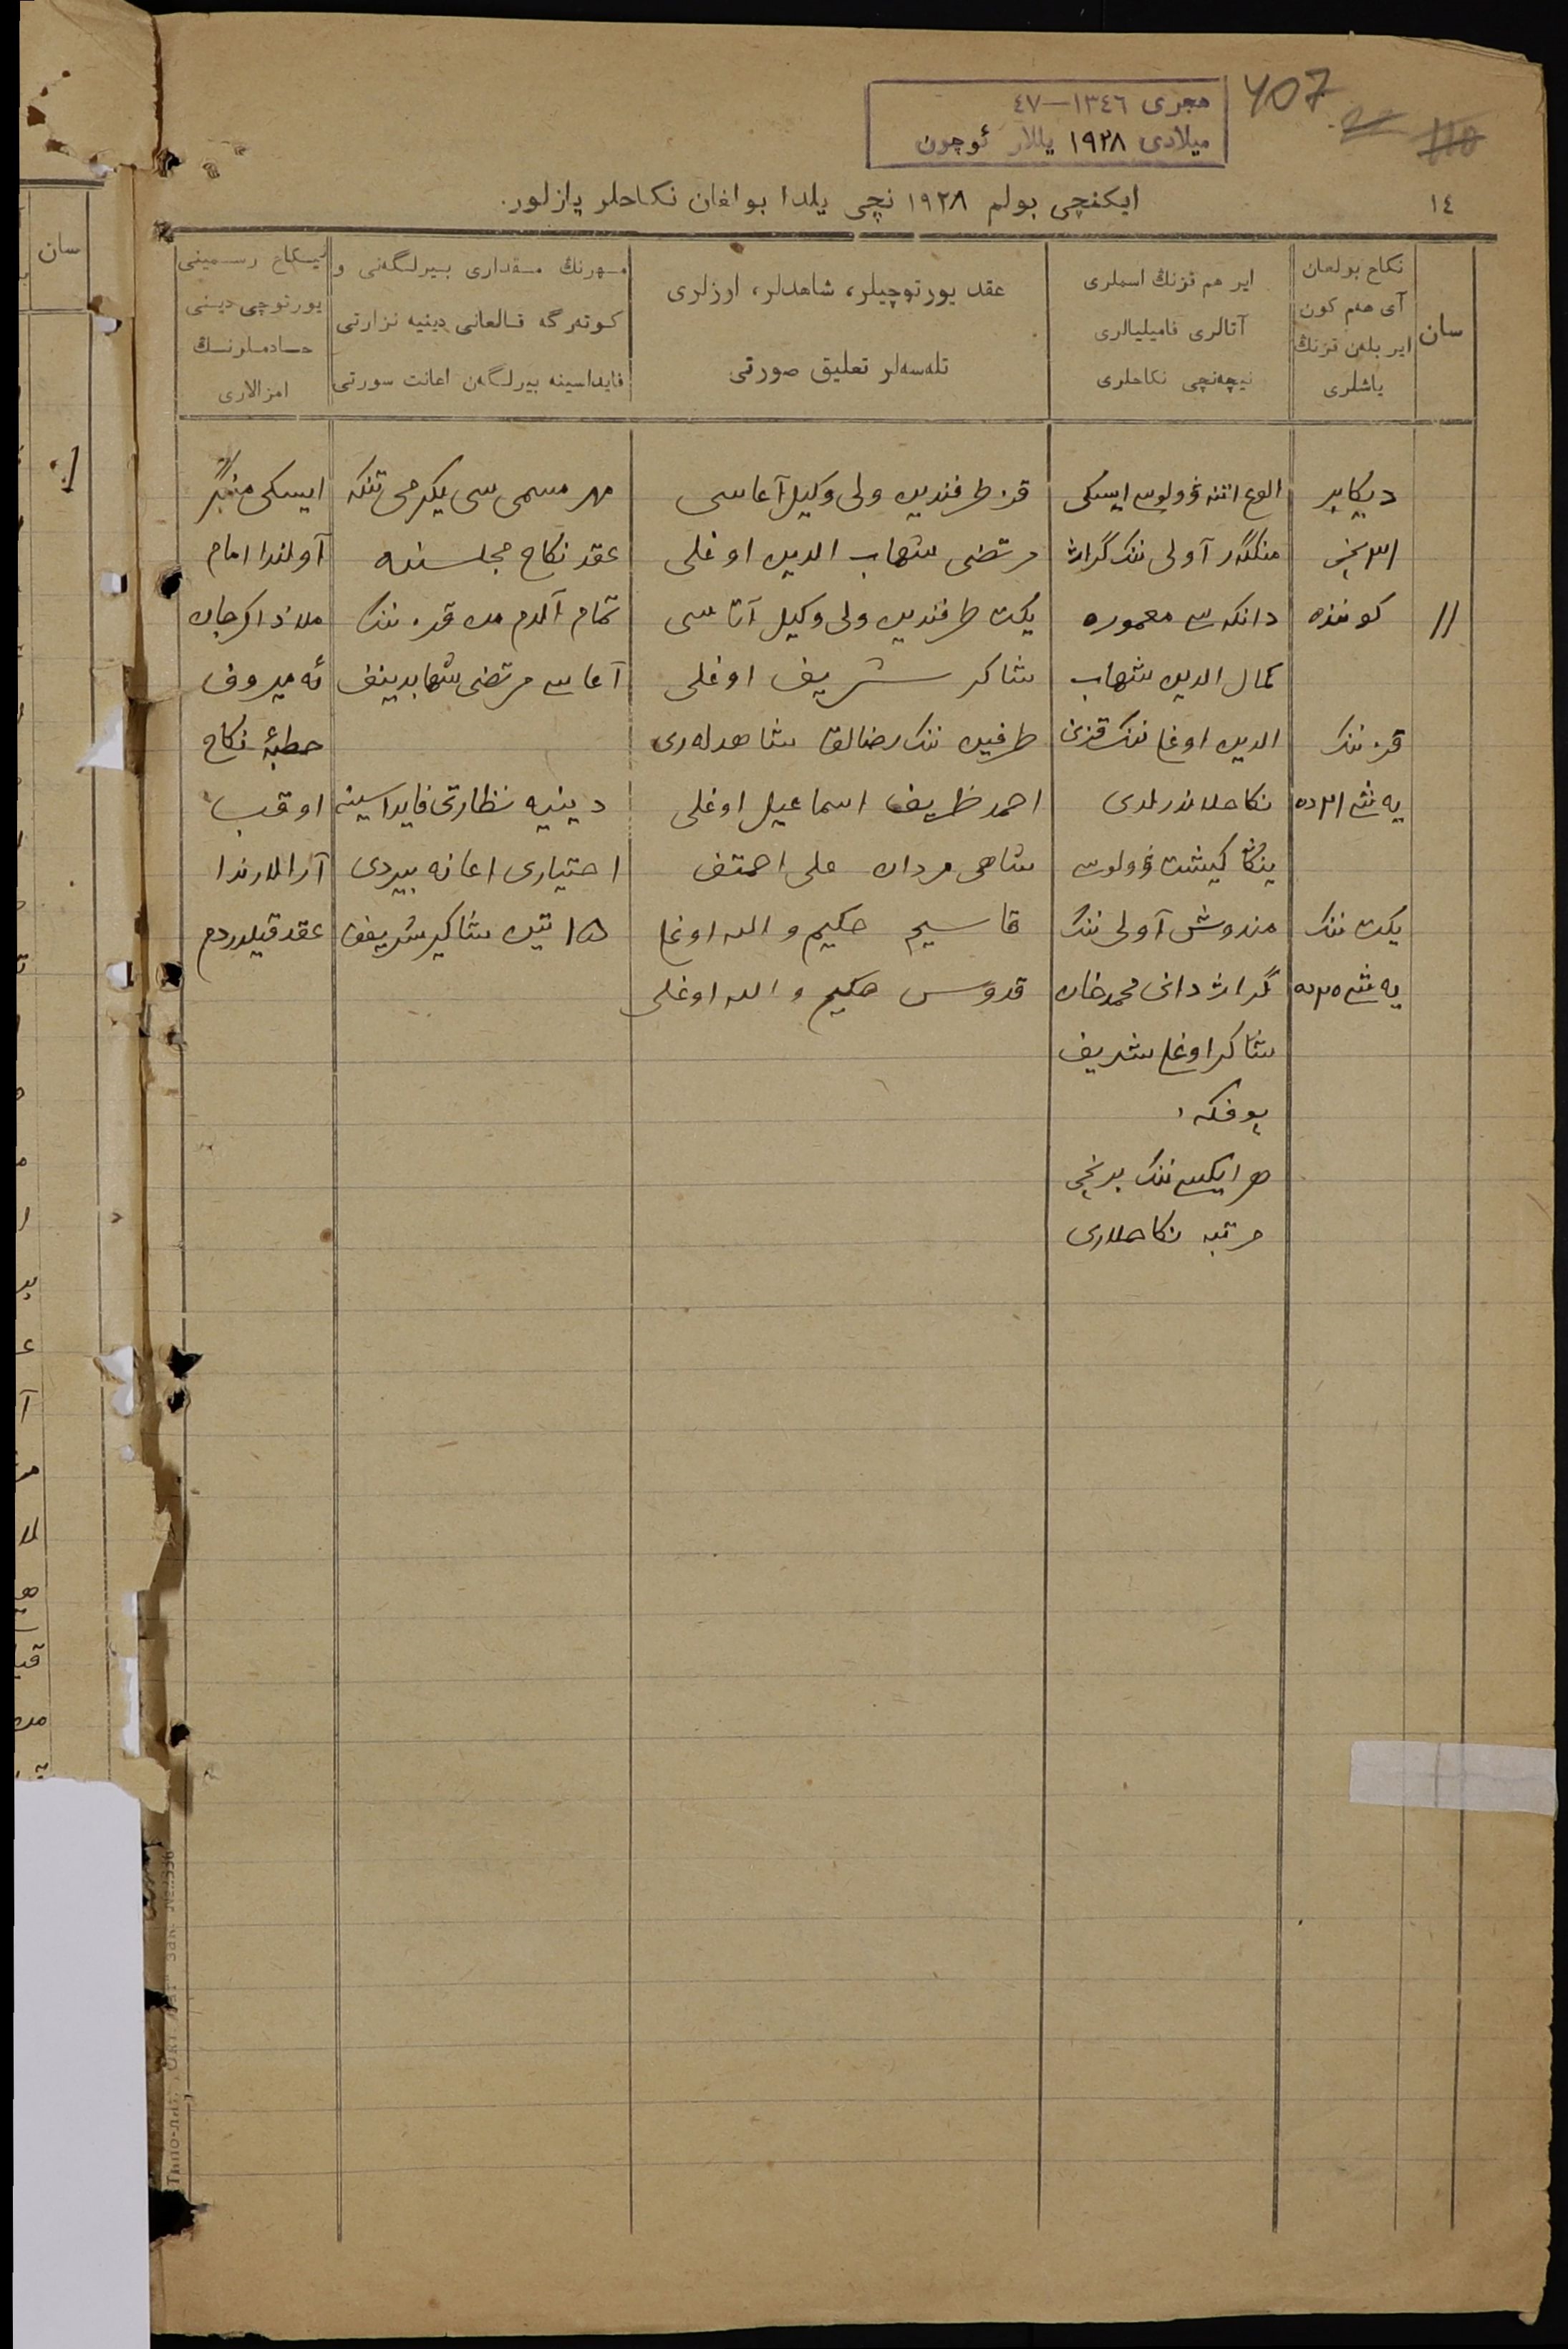 هجری ١٣٤٦—٤٧
میلادی ١٩٢٨ یللار ئوچون
407
١٤
ایکنچی بولم ١٩٢٨ نچی یلدا بولغان نکاحلر یازلور.
سان
نکاح بولغان
آی هەم کون
ایر بلەن قزنڭ
یاشلری
ایر هم قزنڭ اسملری
آتالری فامیلیالری
نیچەنچی نکاحلری
عقد یورتوچیلر، شاهدلر، اوزلری
تلەسەلر تعلیق صورتی
مهرنڭ مقداری بیرلگەنی و
کوتەرگە قالغانی دینیە نزارتی
فایداسینە بیرلگەن اعانت سورتی
نیکاح رسمینی
یورتوچی دینی
خادملرنڭ
امزالاری
11
دیکابر
٣١ نچی
کوننده
قز ننک
یه شی ٢١ ده
یکت ننک
یه شی ٢٥ ده
الوغ اتنه ۋولوسی ایسکی
منگگر آولی ننک گراژ
دانکه سی معموره
کمال الدین شهاب
الدین اوغلی ننک قزی
نکاحلاندرلدی
ینگا کیشت ۋولوسی
مندوش آولی ننک
گراژدانی محمدخان
شاکر اوغلی شریف
یوفکه .
هر ایکیسی ننک برنچی
مرتبه نکاحلاری
قز طرفندین ولی وکیل آغاسی
مرتضی شهاب الدین اوغلی
یکت طرفندین ولی وکیل آتاسی
شاکر شریف اوغلی
طرفین ننک رضالق شاهدلەری
احمد ظریف اسماعیل اوغلی
شاهی مردان علی احمتف
قاسیم حکیم والله اوغلی
قدوس حکیم والله اوغلی
مهر مسمی سی یکرمی تنکه
عقد نکاح مجلسنده
تمام آلدم من قز ننک
آغاسی مرتضی شهابدینف
دینیه نظارتی فایداسینه
اختیاری اعانه بیردی
١٥ تین شاکیر شریفف
ایسکی منگر
آولندا امام
ملا ذاکرجان
ئه میروف
خطبۀ نکاح
اوقب
آرالارندا
عقد قیلدردم